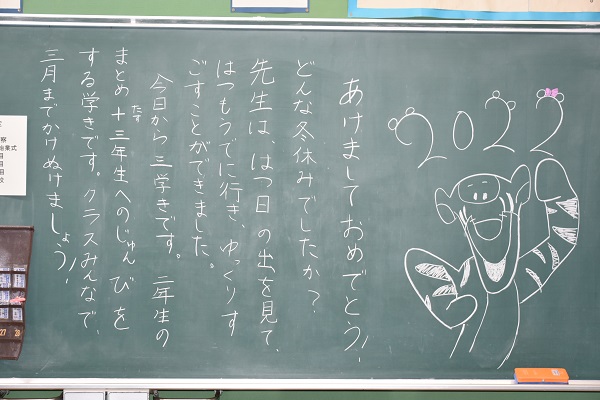 2022
あけましておめでとう!
どんな冬休みでしたか?
先生は、はつ日の出を見て、
はつもうでに行き、ゆっくりす
ごすことができました。
今日から三学きです。二年生の
まとめ+三年生へのじゅんびを
たす
する学きです。クラスみんなで、
三月までかけぬけましょう!
27
28